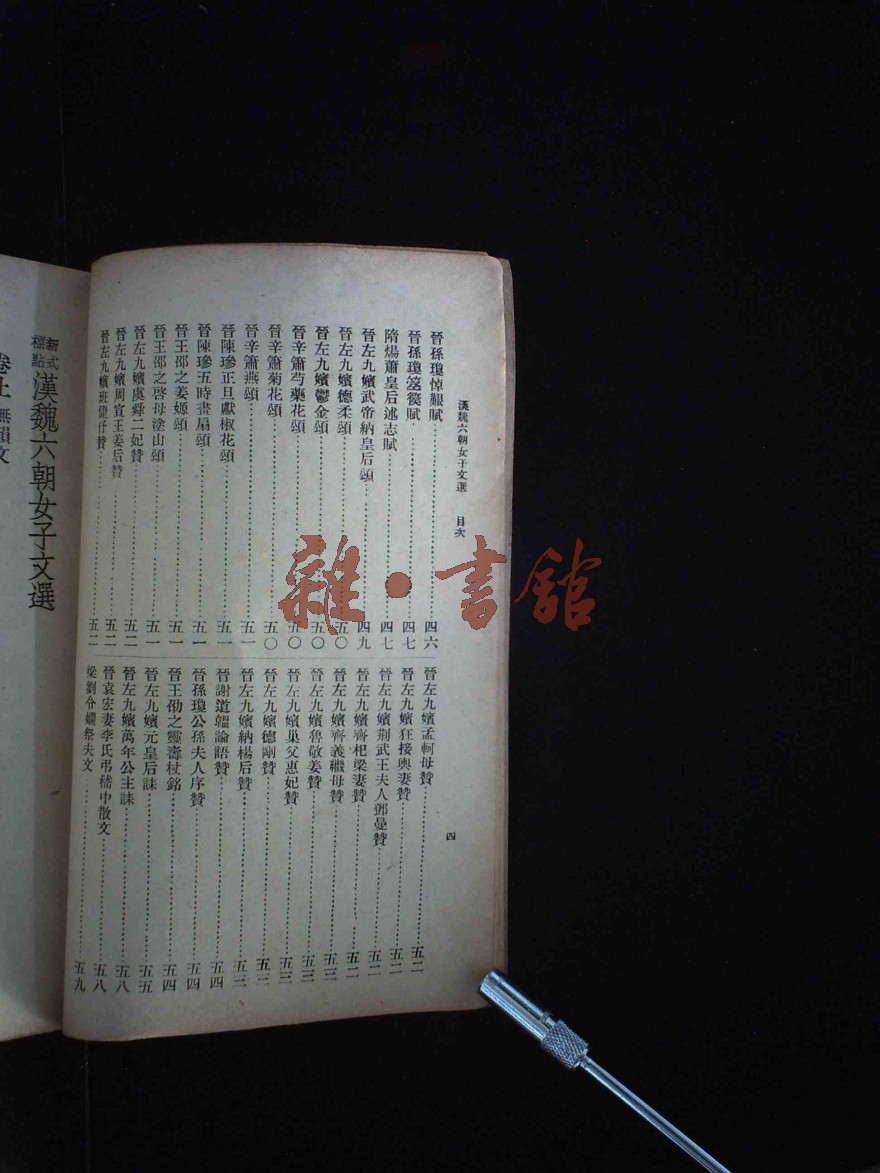 漢魏六朝女子文選 目次 四
晉孫瓊悼艱賦……四六
晉孫瓊箜篌賦……四七
隋煬蕭皇后述志賦……四七
晉左九嬪武帝納皇后頌……四九
晉左九嬪德柔頌……五〇
晉左九嬪鬱金頌……五〇
晉辛簫芍藥花頌……五〇
晉辛簫菊花頌……五〇
晉辛簫燕頌……五一
晉陳㻸正旦獻椒花頌……五一
晉陳㻸五時畫扇頌……五一
晉王邵之姜嫄頌……五一
晉王邵之啓母塗山頌……五一
晉左九嬪虞舜二妃贊……五二
晉左九嬪周宣王姜后贊……五二
晉左九嬪班倢伃贊……五二
晉左九嬪孟軻母贊……五二
晉左九嬪狂接輿妻贊……五二
晉左九嬪荆武王夫人鄧曼贊……五二
晉左九嬪齊杞梁妻贊……五二
晉左九嬪齊義繼母贊……五三
晉左九嬪魯敬姜贊……五三
晉左九嬪巢父惠妃贊……五三
晉左九嬪德剛贊……五三
晉左九嬪納楊后贊……五三
晉謝道韞論語贊……五四
晉孫瓊公孫夫人序贊……五四
晉王劭之靈壽杖銘……五四
晉左九嬪元皇后誄……五五
晉左九嬪萬年公主誄……五八
晉袁宏妻李氏弔嵇中散文……五八
梁劉令嫻祭夫文……五九
新式標點漢魏六朝女子文選
卷上 無韻文
雜·書館